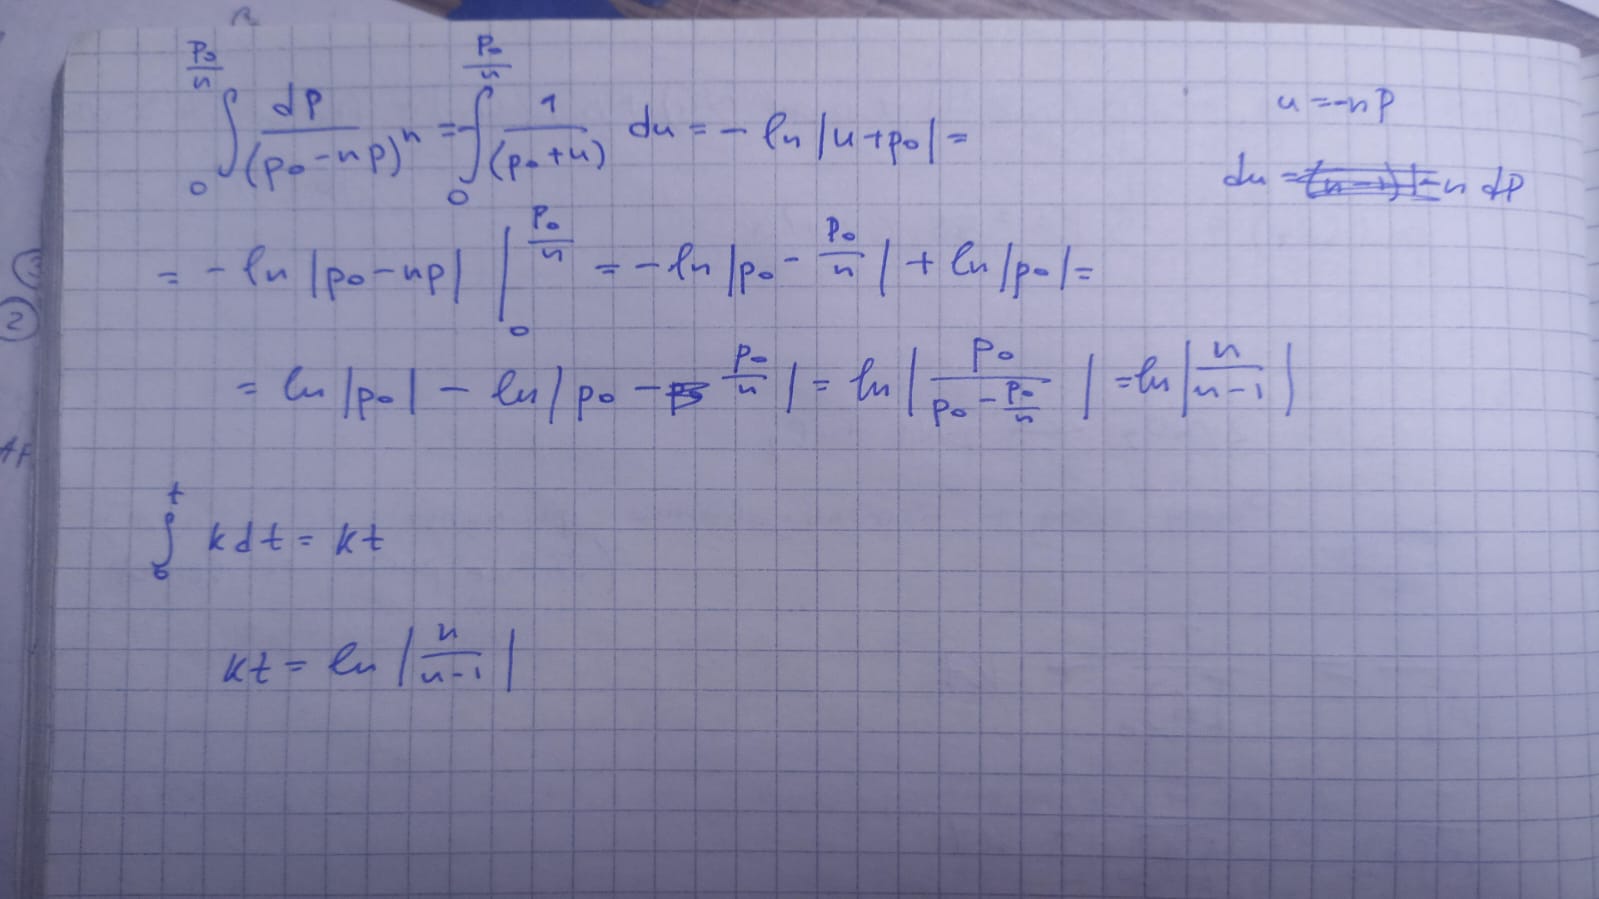 ∫₀^{p₀/n} dp/(p₀-np)ⁿ = -∫₀^{p₀/n} 1/(p₀+u) du = - ln |u+p₀| =
u = -np
du = -n dp
= - ln |p₀-np| |₀^{p₀/n} = - ln |p₀ - p₀/n| + ln |p₀| =
= ln |p₀| - ln |p₀ - p₀/n| = ln | p₀/(p₀ - p₀/n) | = ln | n/(n-1) |
∫₀^t k dt = kt
kt = ln | n/(n-1) |